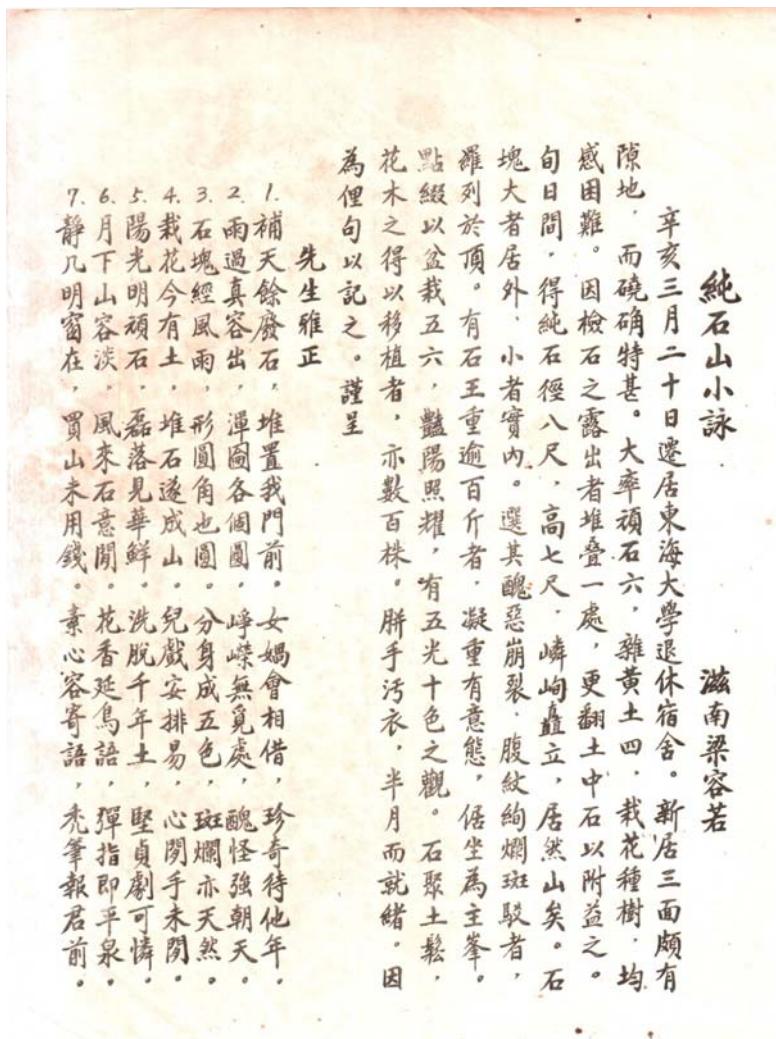 純石山小詠
滋南梁容若
辛亥三月二十日遷居東海大學退休宿舍。新居三面頗有
隙地，而磽确特甚。大率頑石六，雜黃土四，栽花種樹，均
感困難。因檢石之露出者堆叠一處，更翻土中石以附益之。
旬日間，得純石徑八尺，高七尺，嶙峋矗立，居然山矣。石
塊大者居外，小者實內。選其醜惡崩裂，腹紋絢爛斑駁者，
羅列於頂。有石王重逾百斤者，凝重有意態，倨坐為主峯。
點綴以盆栽五六，豔陽照耀，有五光十色之觀。石聚土鬆，
花木之得以移植者，亦數百株。胼手污衣，半月而就緒。因
為俚句以記之。謹呈
先生雅正
1. 補天餘廢石，堆置我門前。女媧會相借，珍奇待他年。
2. 雨過真容出，渾圇各個圓，崢嶸無覓處，醜怪強朝天。
3. 石塊經風雨，形圓角也圓。分身成五色，斑爛亦天然。
4. 栽花今有土，堆石遂成山。兒戲安排易，心閒手未閒。
5. 陽光明頑石，磊落見華鮮。洗脫千年土，堅貞劇可憐。
6. 月下山容淡，風來石意閒。花香延鳥語，彈指即平泉。
7. 靜几明窗在，買山未用錢。素心容寄語，禿筆報君前。